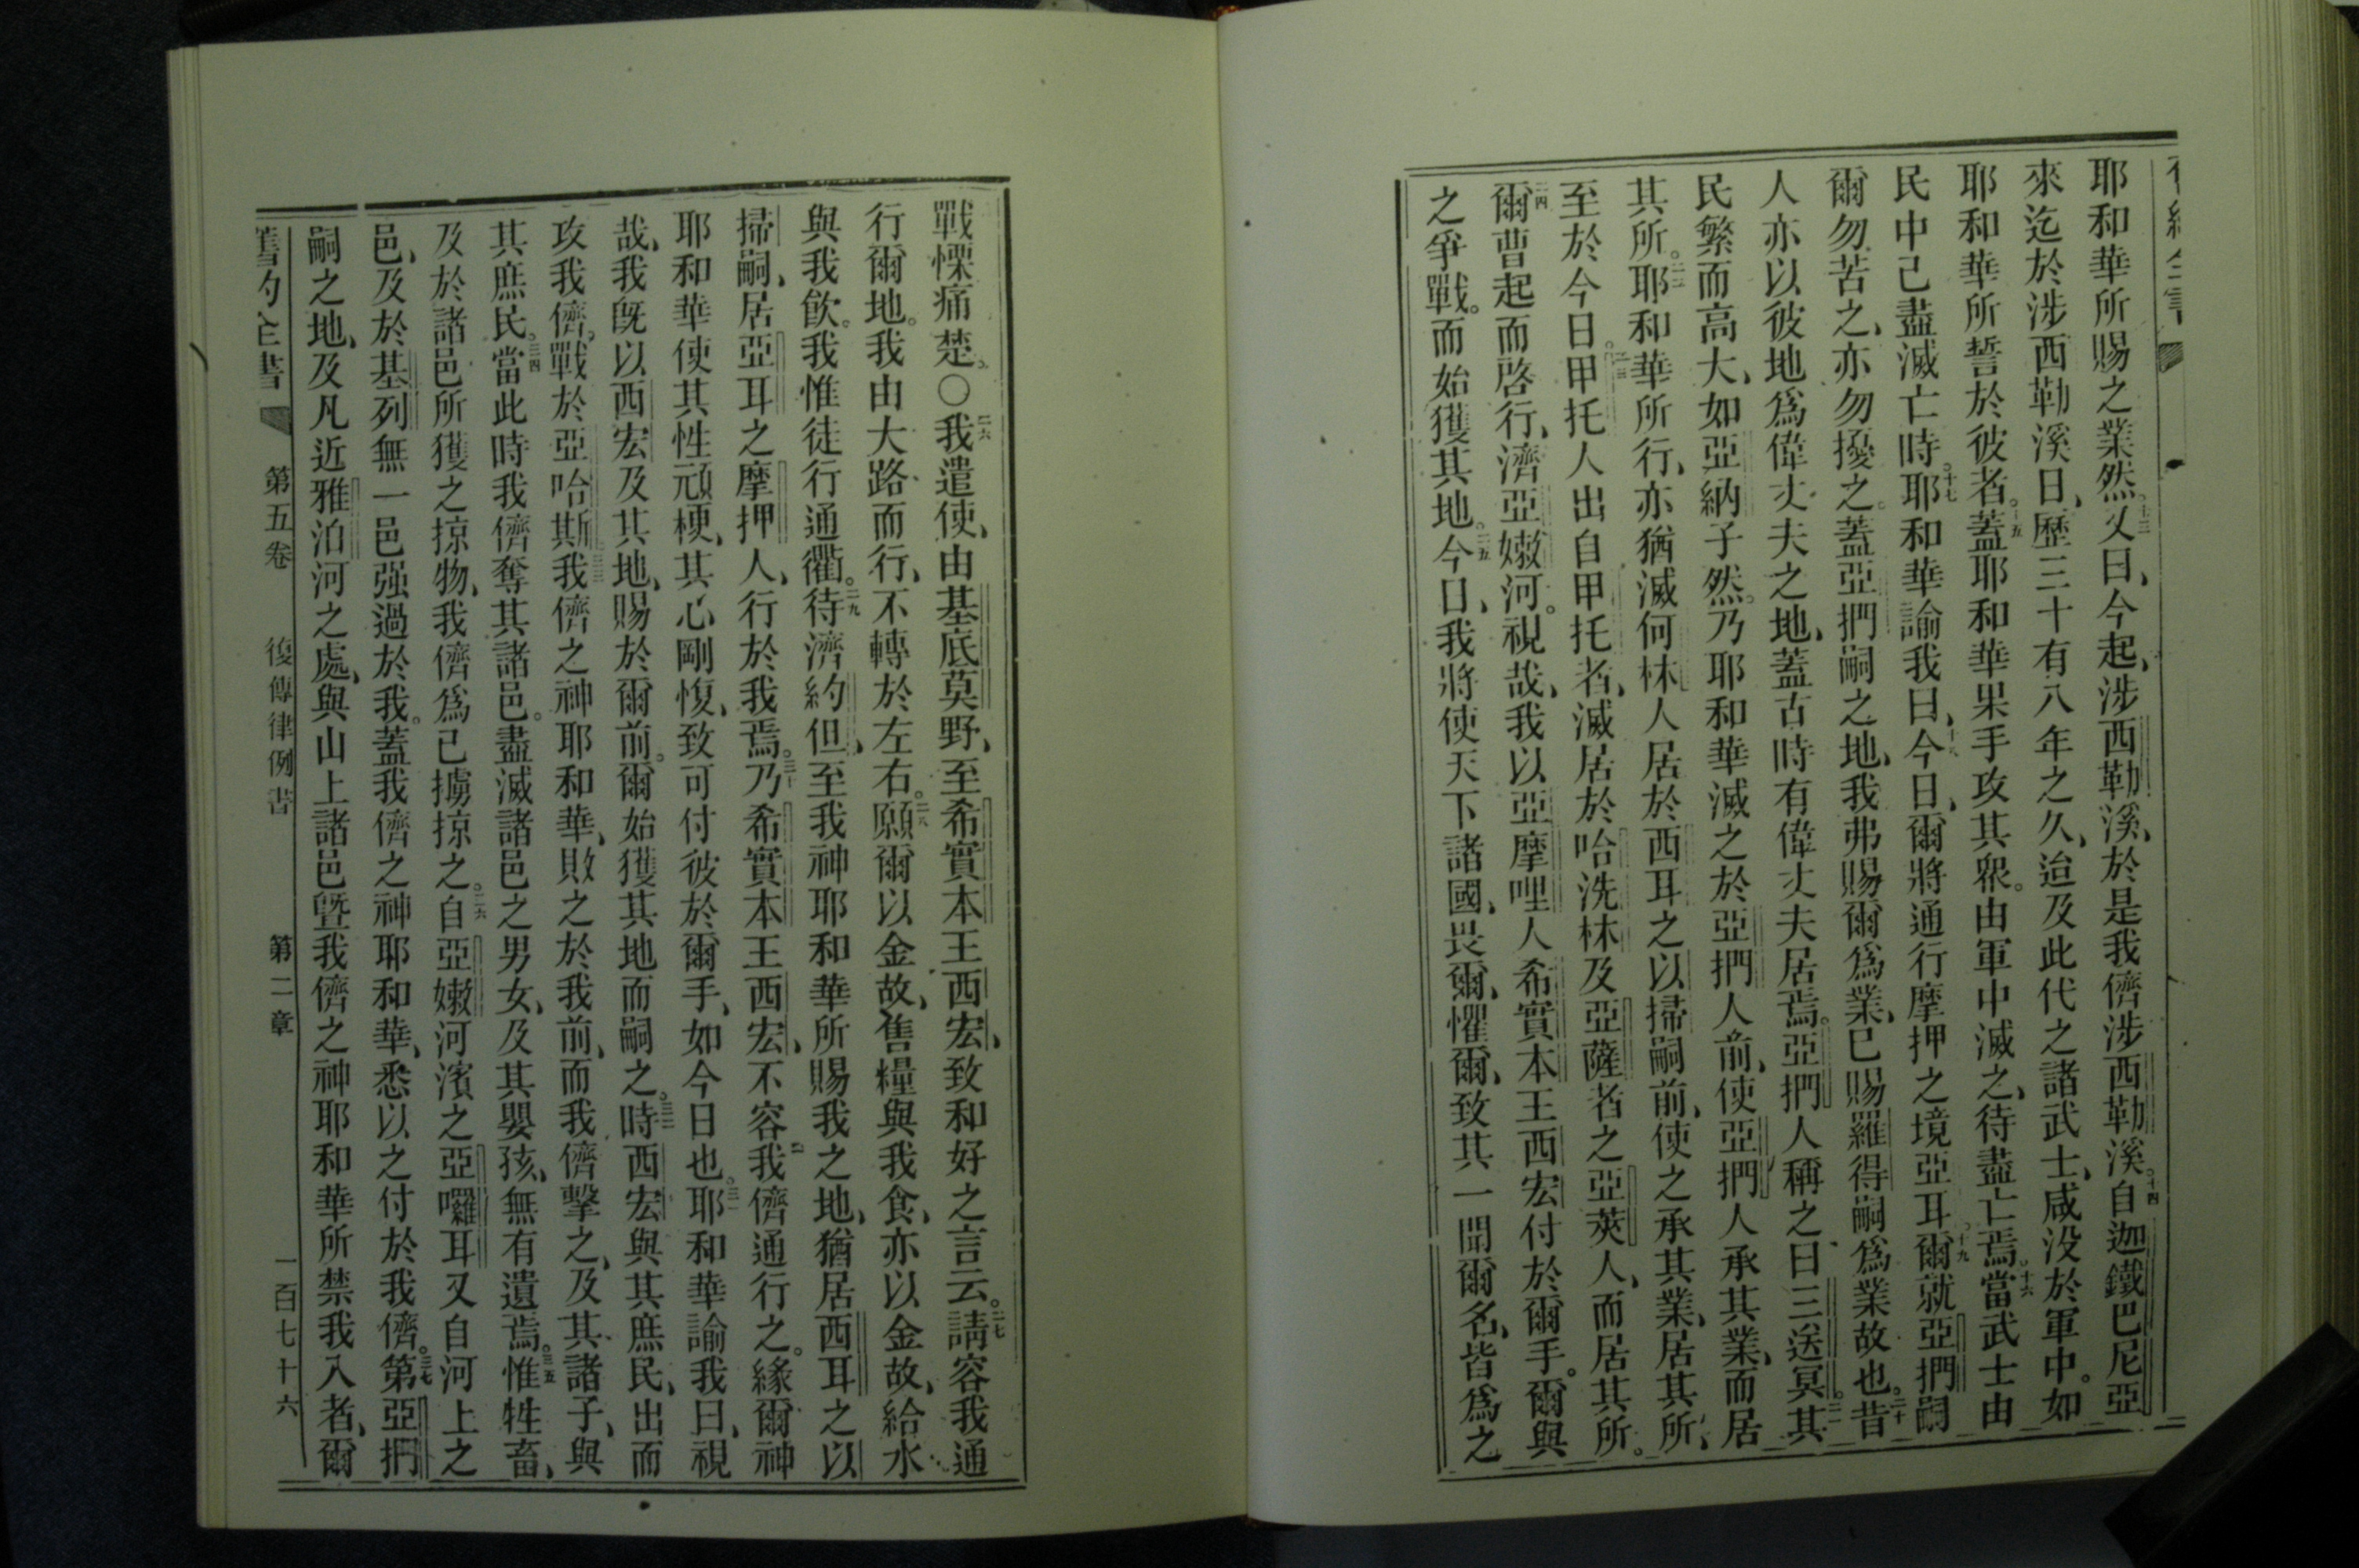 耶和華所賜之業然、十三又曰、今起、涉西勒溪、於是我儕涉西勒溪。十四自迦鐵巴尼亞
來迄於涉西勒溪日、歷三十有八年之久、迨及此代之諸武士、咸沒於軍中。如
耶和華所誓於彼者。十五蓋耶和華果手攻其衆。由軍中滅之、待盡亡焉。十六當武士由
民中已盡滅亡時。十七耶和華諭我曰、十八今日、爾將通行摩押之境亞耳。十九爾就亞捫嗣
爾勿苦之、亦勿擾之。蓋亞捫嗣之地、我弗賜爾爲業、已賜羅得嗣爲業故也。二十昔
人亦以彼地爲偉丈夫之地、蓋古時有偉丈夫居焉。亞捫人稱之曰三送冥。二一其
民繁而高大、如亞納子然。乃耶和華滅之於亞捫人前、使亞捫人承其業、而居
其所。二二耶和華所行、亦猶滅何林人居於西耳之以掃嗣前、使之承其業、居其所、
至於今日。二三甲托人出自甲托者、滅居於哈洗林及亞薩者之亞莢人、而居其所。
二四爾曹起而啓行、濟亞嫩河。視哉、我以亞摩哩人希實本王西宏付於爾手。爾與
之爭戰。而始獲其地。二五今日、我將使天下諸國、畏爾、懼爾、致其一聞爾名、皆爲之
戰慄痛楚。○二六我遣使、由基底莫野、至希實本王西宏、致和好之言云。二七請容我通
行爾地。我由大路而行、不轉於左右。二八願爾以金故、售糧與我食、亦以金故、給水
與我飲。我惟徒行通衢。二九待濟約但、至我神耶和華所賜我之地、猶居西耳之以
掃嗣、居亞耳之摩押人、行於我焉。三十乃希實本王西宏、不容我儕通行之。緣爾神
耶和華使其性頑梗、其心剛愎、致可付彼於爾手、如今日也。三一耶和華諭我曰、視
哉、我既以西宏及其地、賜於爾前。爾始獲其地而嗣之。三二時西宏與其庶民、出而
攻我儕。戰於亞哈斯。三三我儕之神耶和華、敗之於我前、而我儕擊之、及其諸子、與
其庶民。三四當此時我儕奪其諸邑。盡滅諸邑之男女、及其嬰孩、無有遺焉。三五惟牲畜、
及於諸邑所獲之掠物、我儕爲己擄掠之。三六自亞嫩河濱之亞囉耳又自河上之
邑、及於基列無一邑强過於我。蓋我儕之神耶和華、悉以之付於我儕。三七第亞捫
嗣之地、及凡近雅泊河之處、與山上諸邑曁我儕之神耶和華所禁我入者、爾
舊約全書 第五卷 復傳律例書 第二章 一百七十六